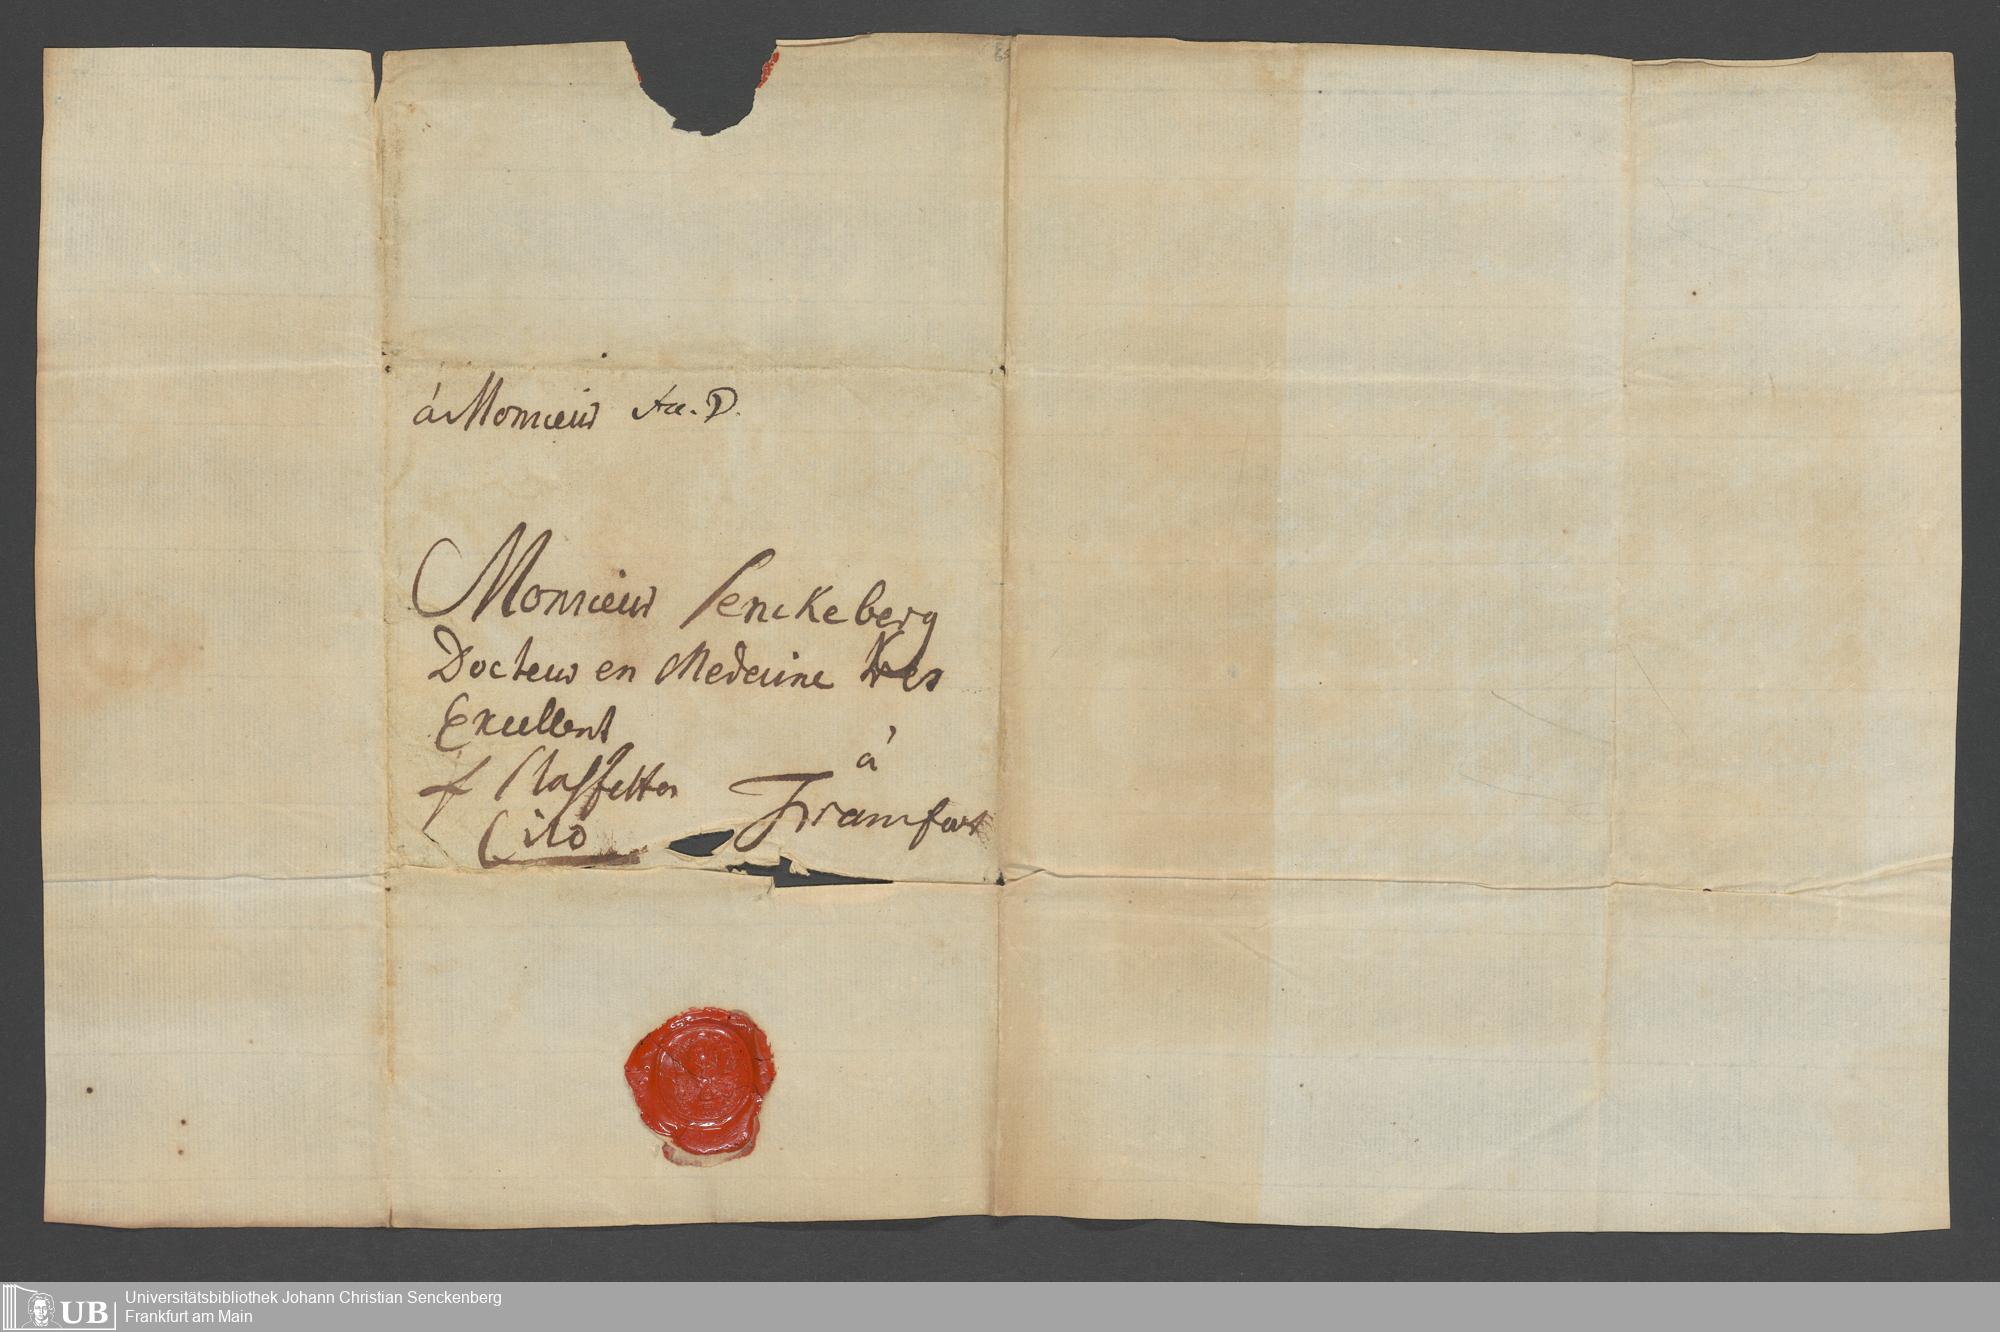 à Monsieur
Monsieur Senckeberg
Docteur en Medecine tres
Excellent
à
Staffetten
Francfort
Cito
UB
Universitätsbibliothek Johann Christian Senckenberg
Frankfurt am Main